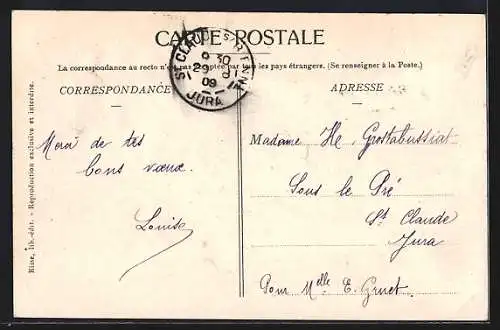 CARTE POSTALE
La correspondance au recto n'est pas acceptée par tous les pays étrangers. (Se renseigner à la Poste.)
CORRESPONDANCE
ADRESSE
Merci de tes
bons vœux.
Louise
Madame He. Grostabussiat
Sous le Pré
St Claude
Jura
Pour Melle E. Gruet
ST CLAUDE S. R. ENNE
8 30
29
09
JURA
lib.-édit. - Reproduction exclusive et interdite.